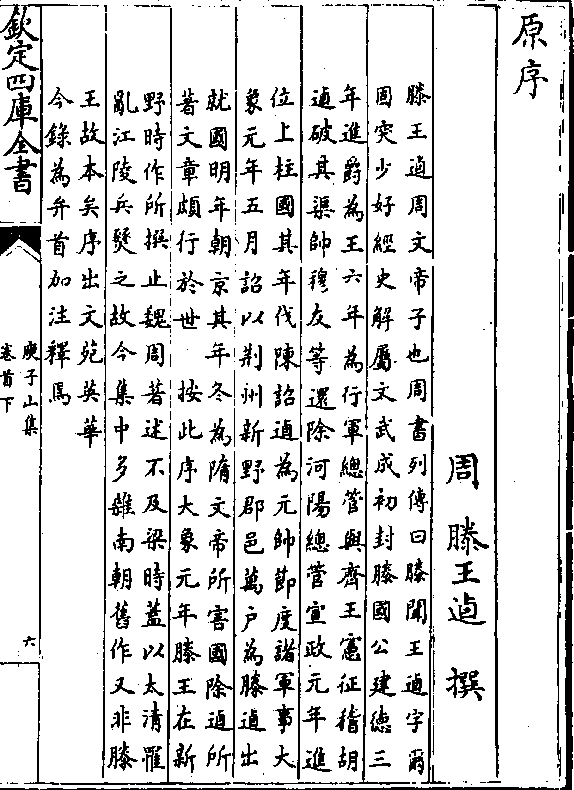 原序
周 滕王逌 撰
滕王逌周文帝子也周書列傳曰滕聞王逌字爾
固突少好經史解屬文武成初封滕國公建德三
年進爵為王六年為行軍總管與齊王憲征稽胡
逌破其渠帥穆友等還除河陽總管宣政元年進
位上柱國其年伐陳詔逌為元帥節度諸軍事大
象元年五月詔以荆州新野郡邑萬户為滕逌出
就國明年朝京其年冬為隋文帝所害國除逌所
著文章頗行於世 按此序大象元年滕王在新
野時作所撰止魏周著述不及梁時蓋以太清罹
亂江陵兵燹之故今集中多雜南朝舊作又非滕
王故本矣序出文苑英華
今錄為弁首加注釋焉
欽定四庫全書
庾子山集
卷首下
六